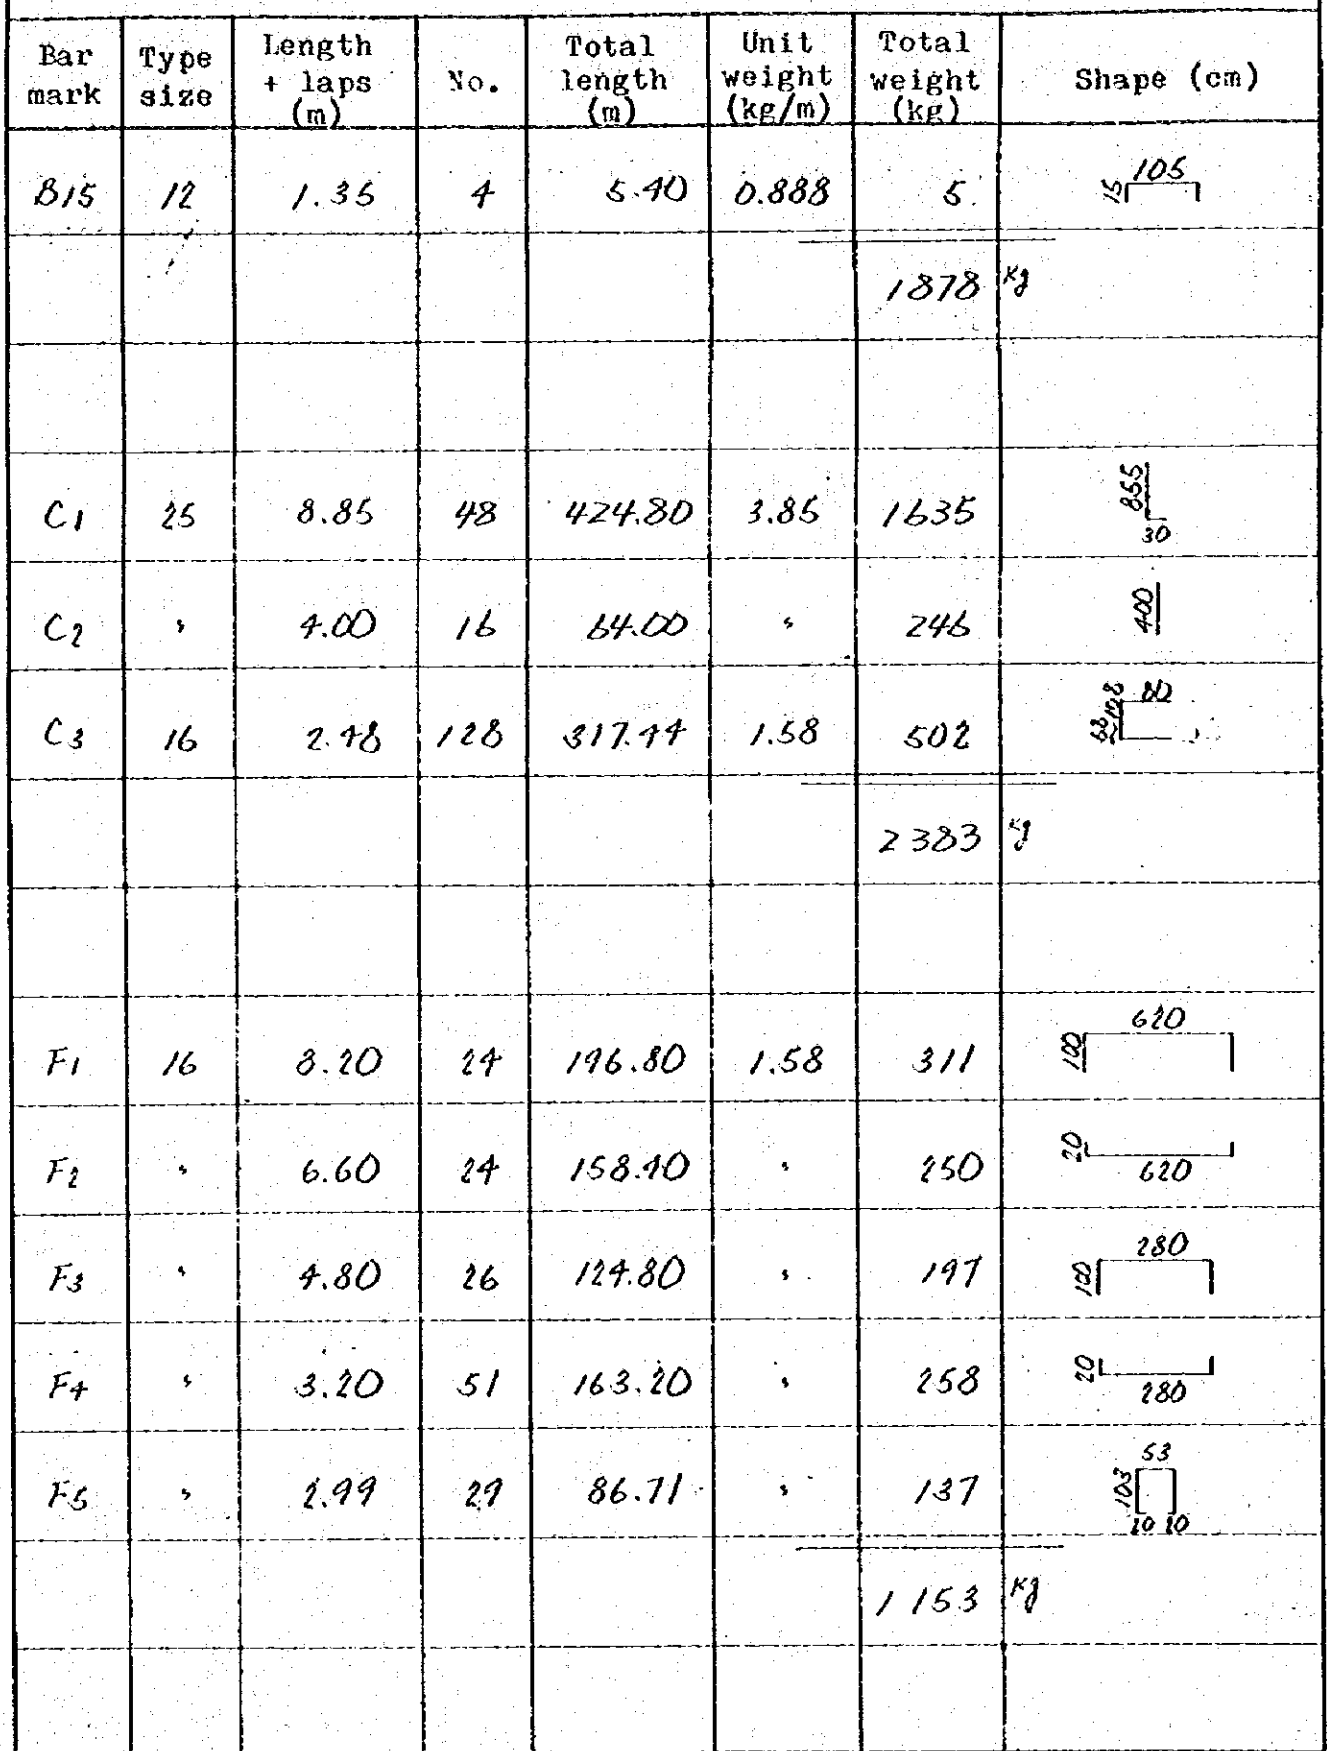 Bar mark Type size Length + laps (m) No. Total length (m) Unit weight (kg/m) Total weight (kg) Shape (cm)
B15 12 1.35 4 5.40 0.888 5. 15 105
1878 kg
C1 25 8.85 48 424.80 3.85 1635 855 30
C2 〃 4.00 16 64.00 〃 246 400
C3 16 2.48 128 317.44 1.58 502 80
2383 kg
F1 16 8.20 24 196.80 1.58 311 100 620
F2 〃 6.60 24 158.40 〃 250 20 620
F3 〃 4.80 26 124.80 〃 197 100 280
F4 〃 3.20 51 163.20 〃 258 20 280
F5 〃 2.99 29 86.71 〃 137 103 53 20 20
1153 kg